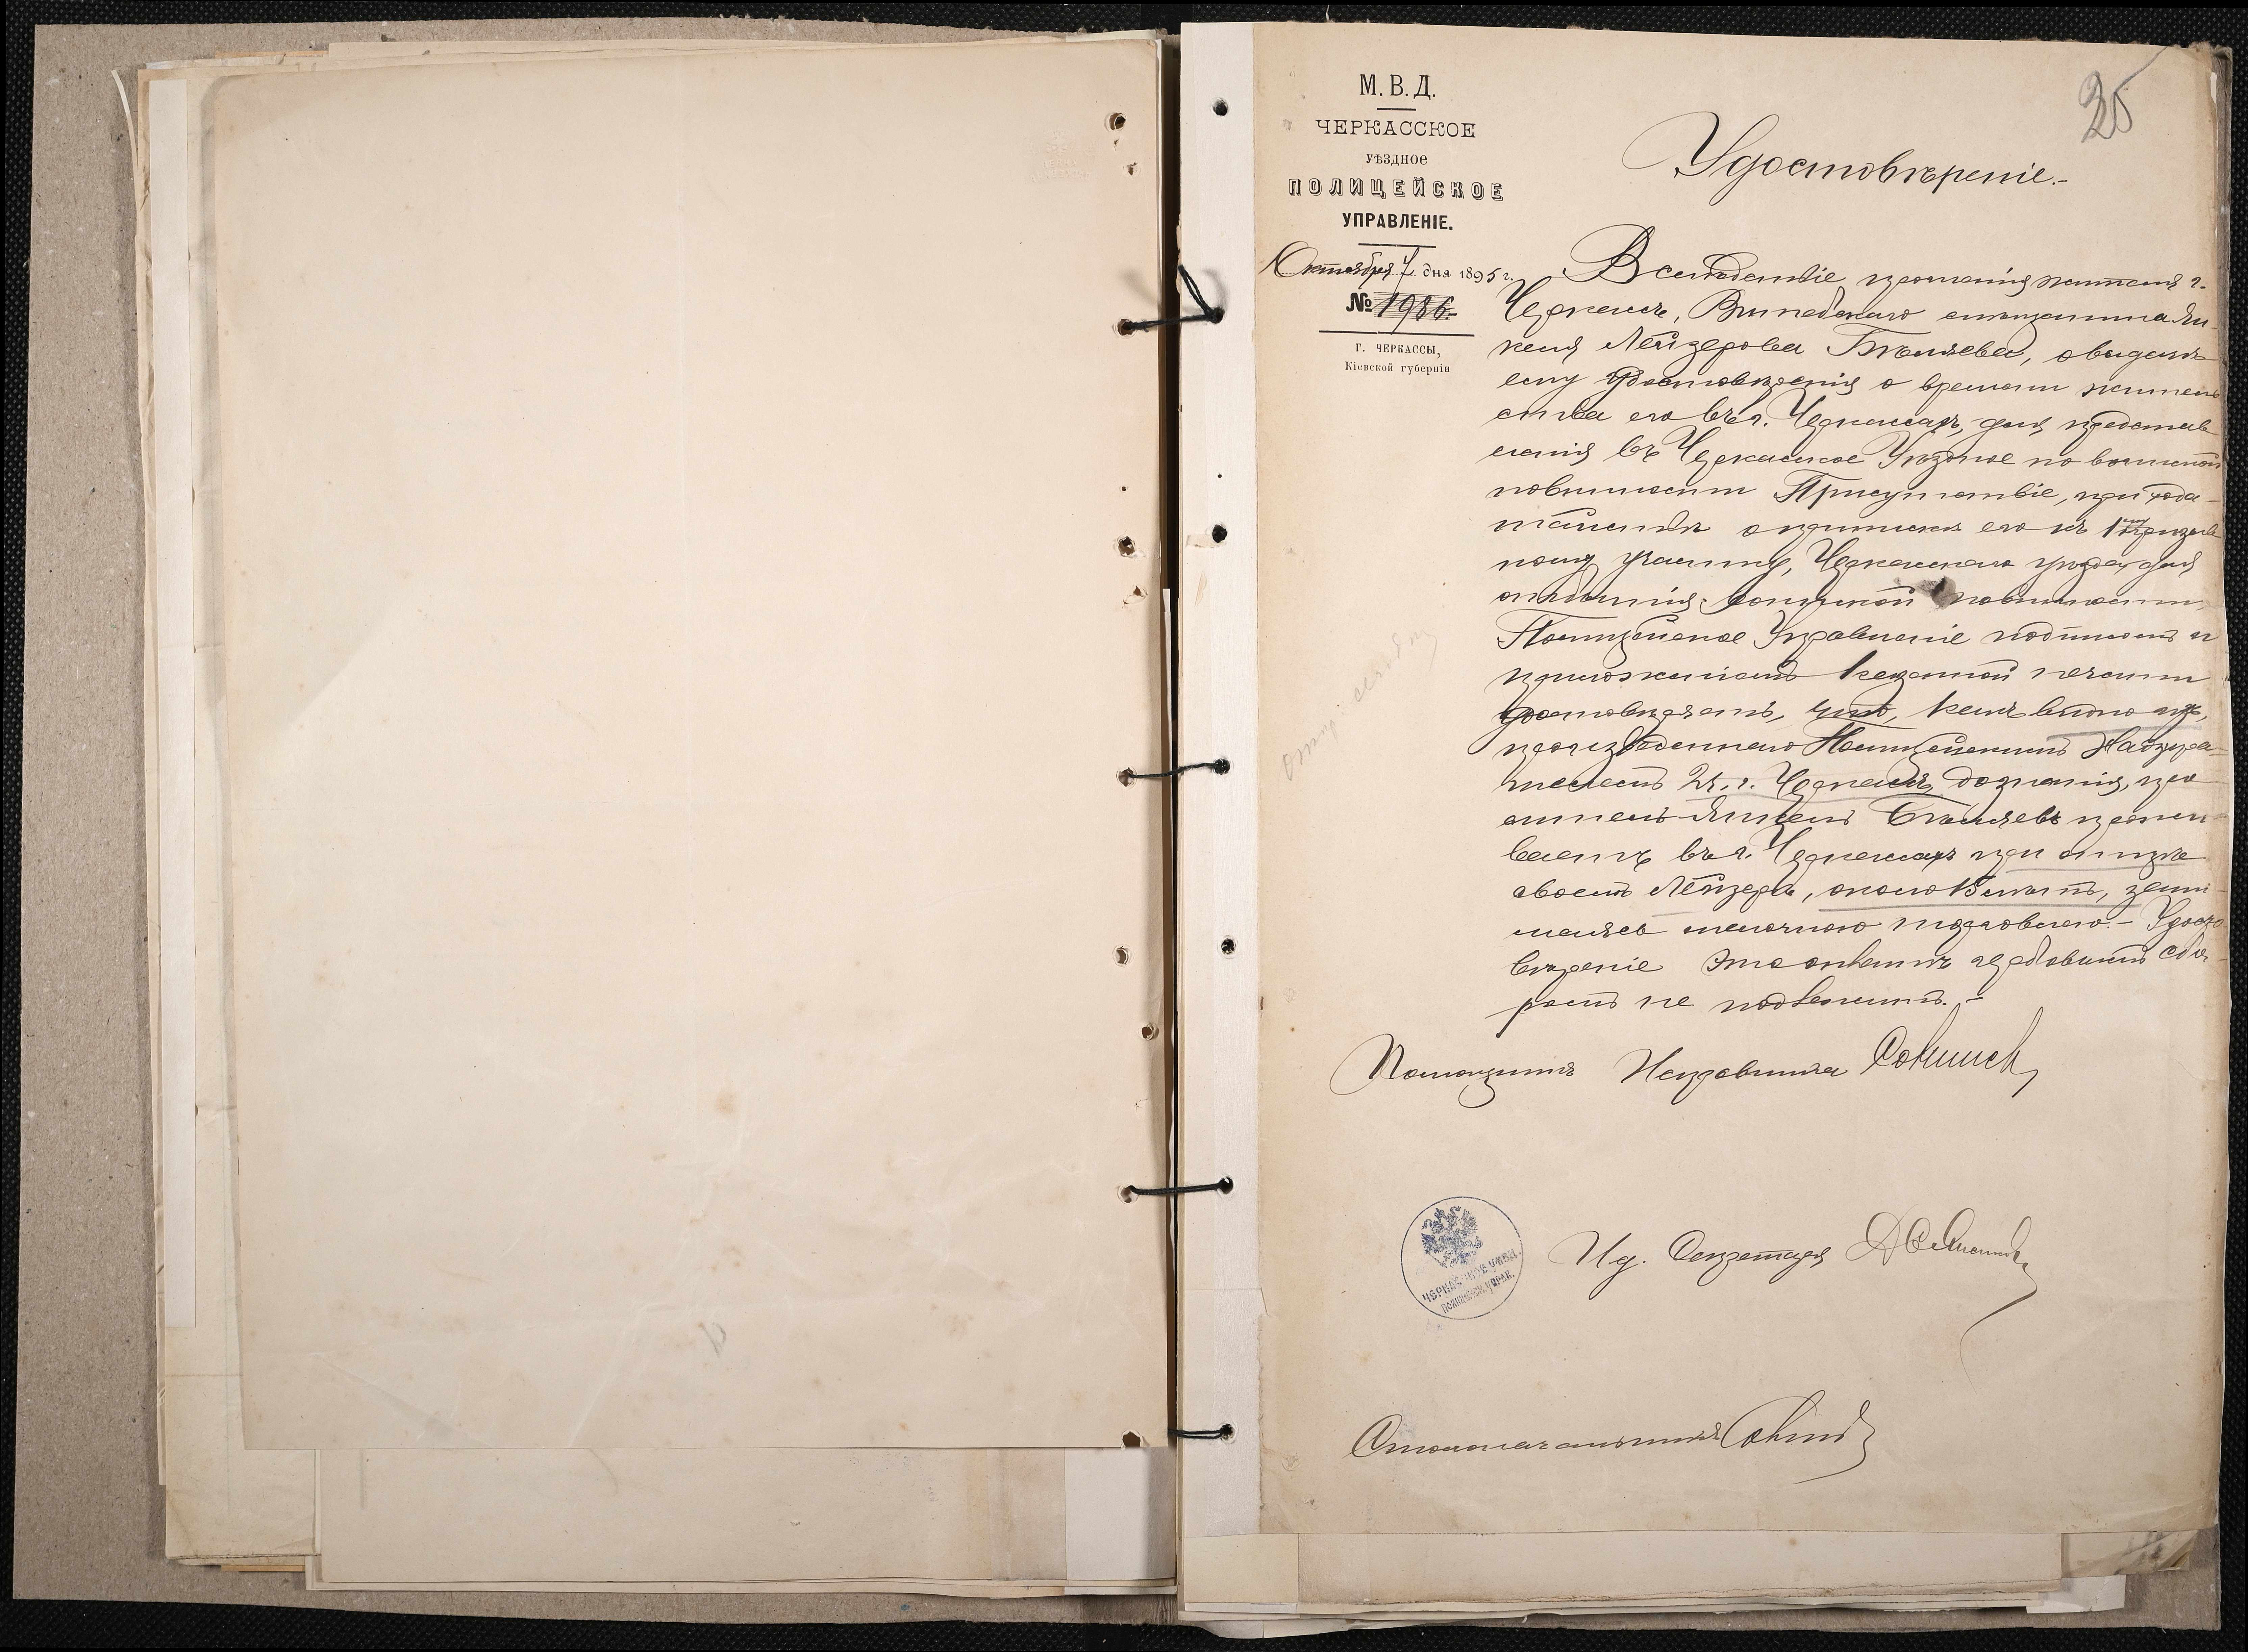 25
М. В. Д.
ЧЕРКАССКОЕ
УѢЗДНОЕ
ПОЛИЦЕЙСКОЕ
УПРАВЛЕНІЕ.
Октября 7 дня 1895 г.
№ 1986.
Г. ЧЕРКАССЫ,
Кіевской губерніи
Удостовѣреніе.-
Вслѣдствіе прошенія жителя г.
Черкассъ, Витебскаго мѣщанина Ян-
келя Лейзерова Бѣляева, о выдачѣ
ему удостовѣренія о времени житель
ства его въ г. Черкассахъ, для представ-
ленія въ Черкасское Уѣздное по воинской
повинности Присутствіе, при хода-
тайствѣ о припискѣ его къ 1му призыв
ному участку, Черкасскаго уѣзда, для
отбытія воинской повинности,
Полицейское Управленіе подписью и
приложеніемъ казенной печати
удостовѣряетъ, что, какъ видно изъ,
произведеннаго Полицейскимъ Надзира-
телемъ 2 ч. г. Черкассъ, дознанія, про-
ситель Янкель Бѣляевъ прожи-
ваетъ въ г. Черкассахъ при отцѣ
своемъ Лейзерѣ, около 15 лѣтъ, зани-
маясь мелочною торговлею.- Удосто
вѣреніе это оплатѣ гербовымъ сбо-
ромъ не подлежитъ.-
Помощникъ Исправника
И д. Секретаря
ЧЕРКАССКОЕ УѢЗД.
ПОЛИЦЕЙСК. УПРАВ.
Столоначальникъ